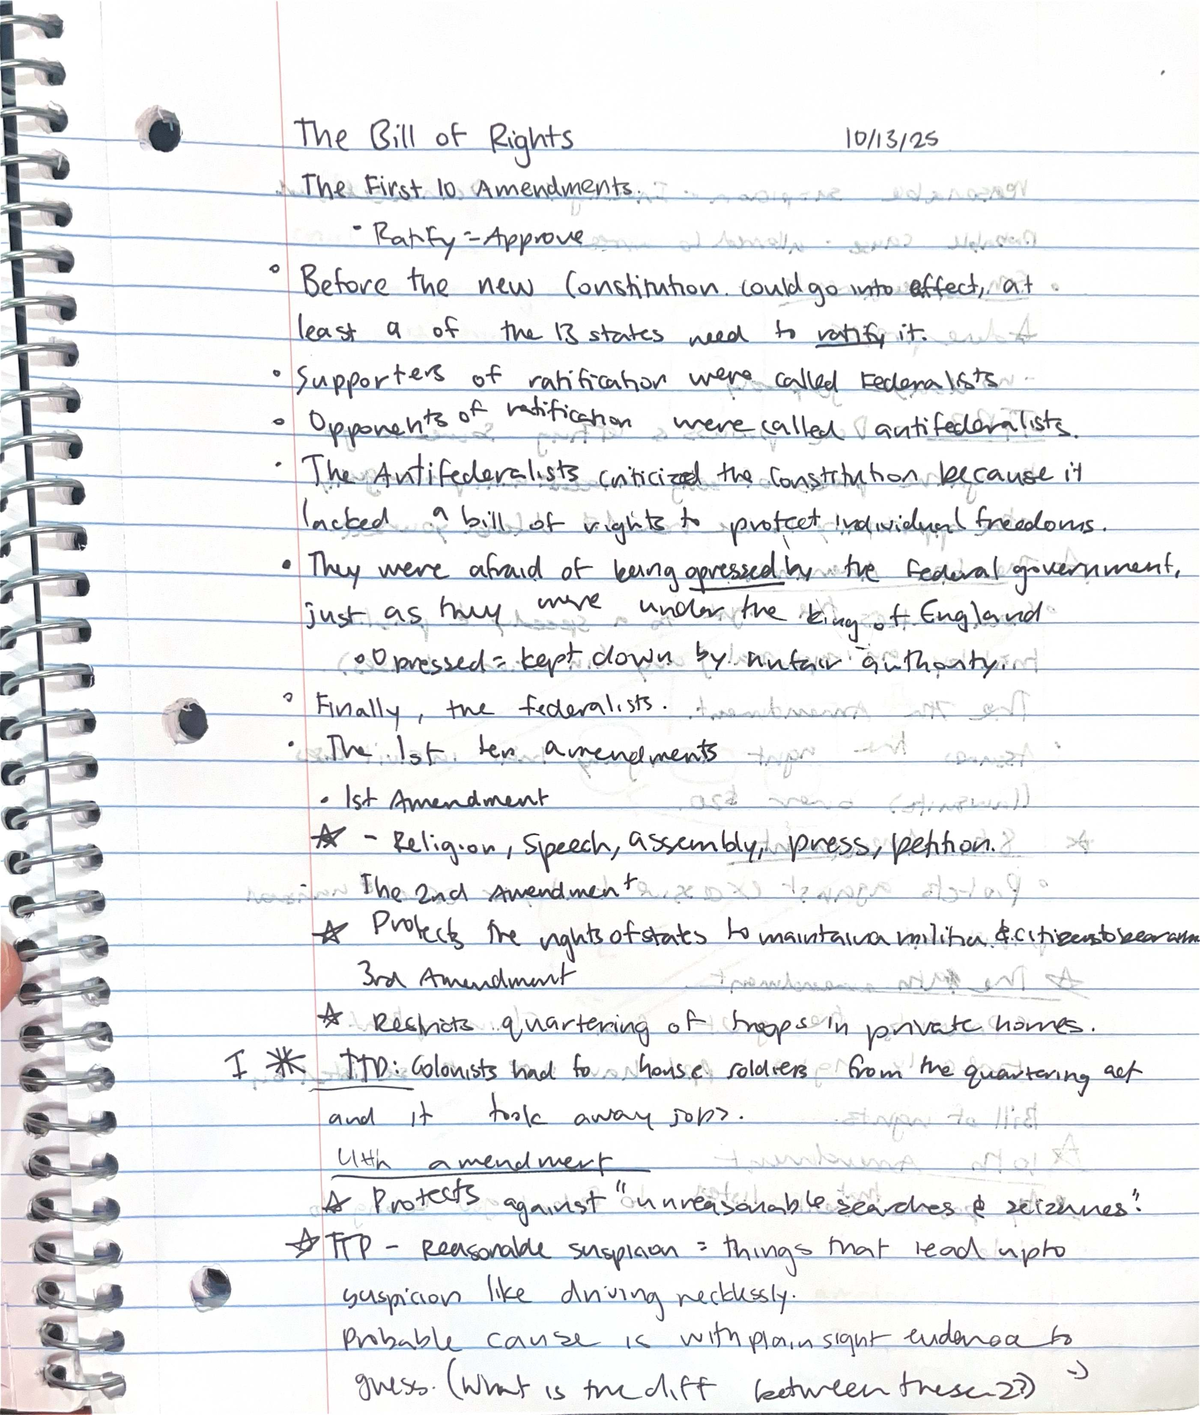 The Bill of Rights 10/13/25
The First 10 Amendments.
• Ratify = Approve
° Before the new Constitution could go into effect, at
least 9 of the 13 states need to ratify it.
• Supporters of ratification were called Federalists
° Opponents of ratification were called antifederalists.
• The Antifederalists criticized the Constitution because it
lacked a bill of rights to protect individual freedoms.
• They were afraid of being opressed by the federal government,
just as they were under the king of England
° Opressed = kept down by unfair authority.
° Finally, the federalists.
• The 1st ten amendments
• 1st Amendment
☆ - Religion, Speech, assembly, press, petition.
The 2nd Amendment
☆ Protects the rights of states to maintain a militia & citizens to bear arm
3rd Amendment
☆ Restricts quartering of troops in private homes.
I * TTD: Colonists had to house soldiers from the quartering act
and it took away jobs.
4th amendment
☆ Protects against "unreasonable searches & seizures."
☆ TTP - Reasonable suspicion = things that lead up to
suspicion like driving recklessly.
Probable cause is with plain sight evidence to
guess. (What is the diff between these 2?)